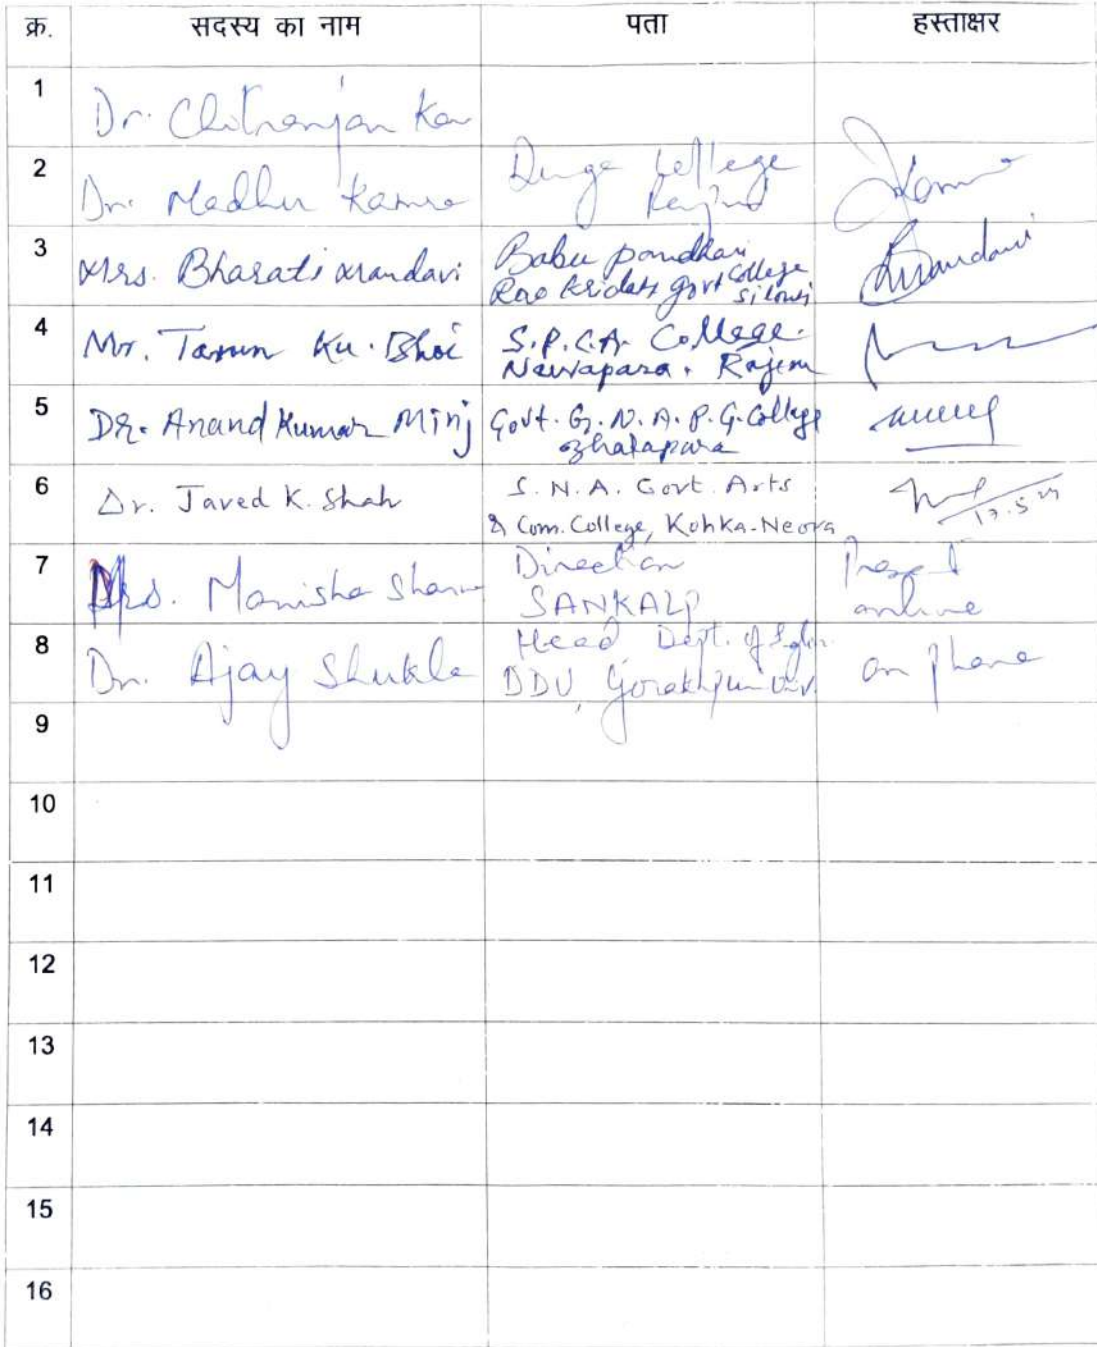 क्र. सदस्य का नाम पता हस्ताक्षर
1 Dr. Chitranjan Kar
2 Dr. Madhu Kamra Durga College
3 Mrs. Bharati Mandavi Babu pandhari
Rao Kridatt Govt College
4 Mr. Tarun Ku. Bhoi S.P.C.A. College.
Nawapara. Rajim
5 DR. Anand Kumar Minj Govt. G. N. A. P. G. College
Bhatapara
6 Dr. Javed K. Shah S. N. A. Govt. Arts
& Com. College, Kohka-Neora
7 Mrs. Manisha Sharma Direction Present
SANKALP online
8 Dr. Ajay Shukla Head Dept. of on phone
DDU, Gorakhpur Univ.
9
10
11
12
13
14
15
16